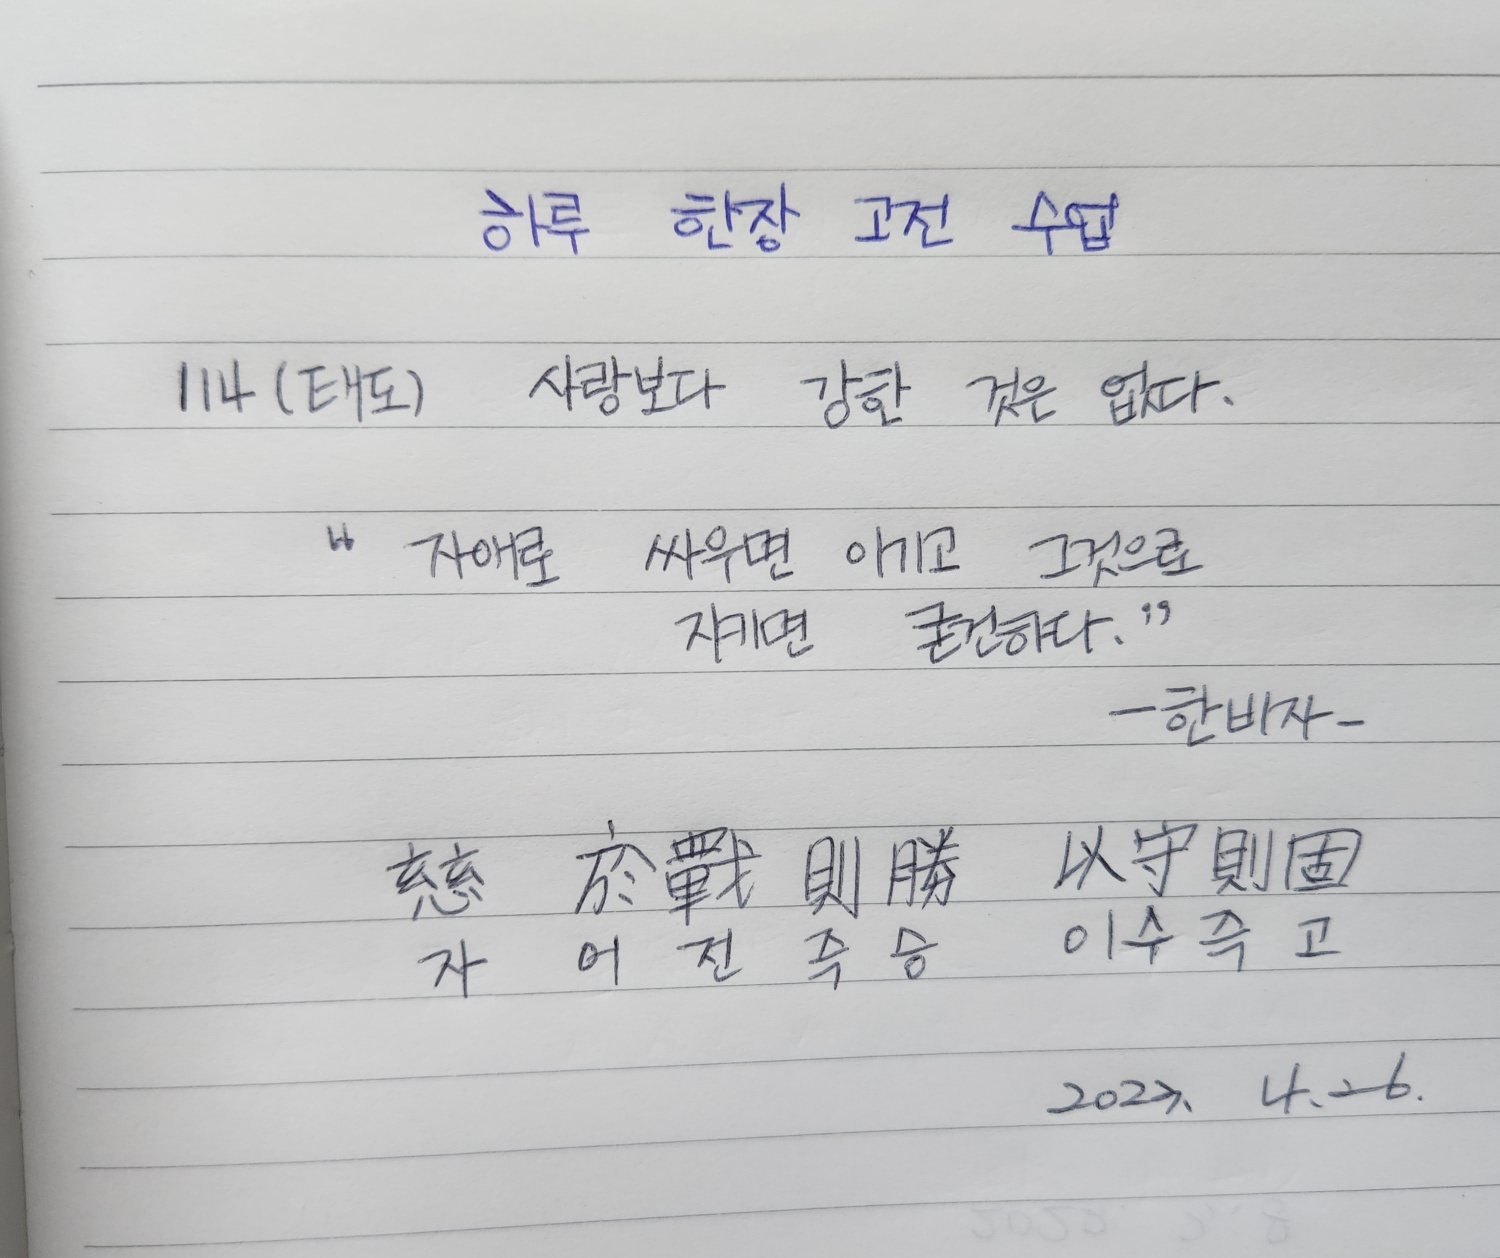 하루 한장 고전 수업
114 (태도) 사랑보다 강한 것은 없다.
“ 자애로 싸우면 이기고 그것으로
지키면 굳건하다.”
- 한비자 -
慈 於戰則勝 以守則固
자 어 전 즉 승 이 수 즉 고
4.26.